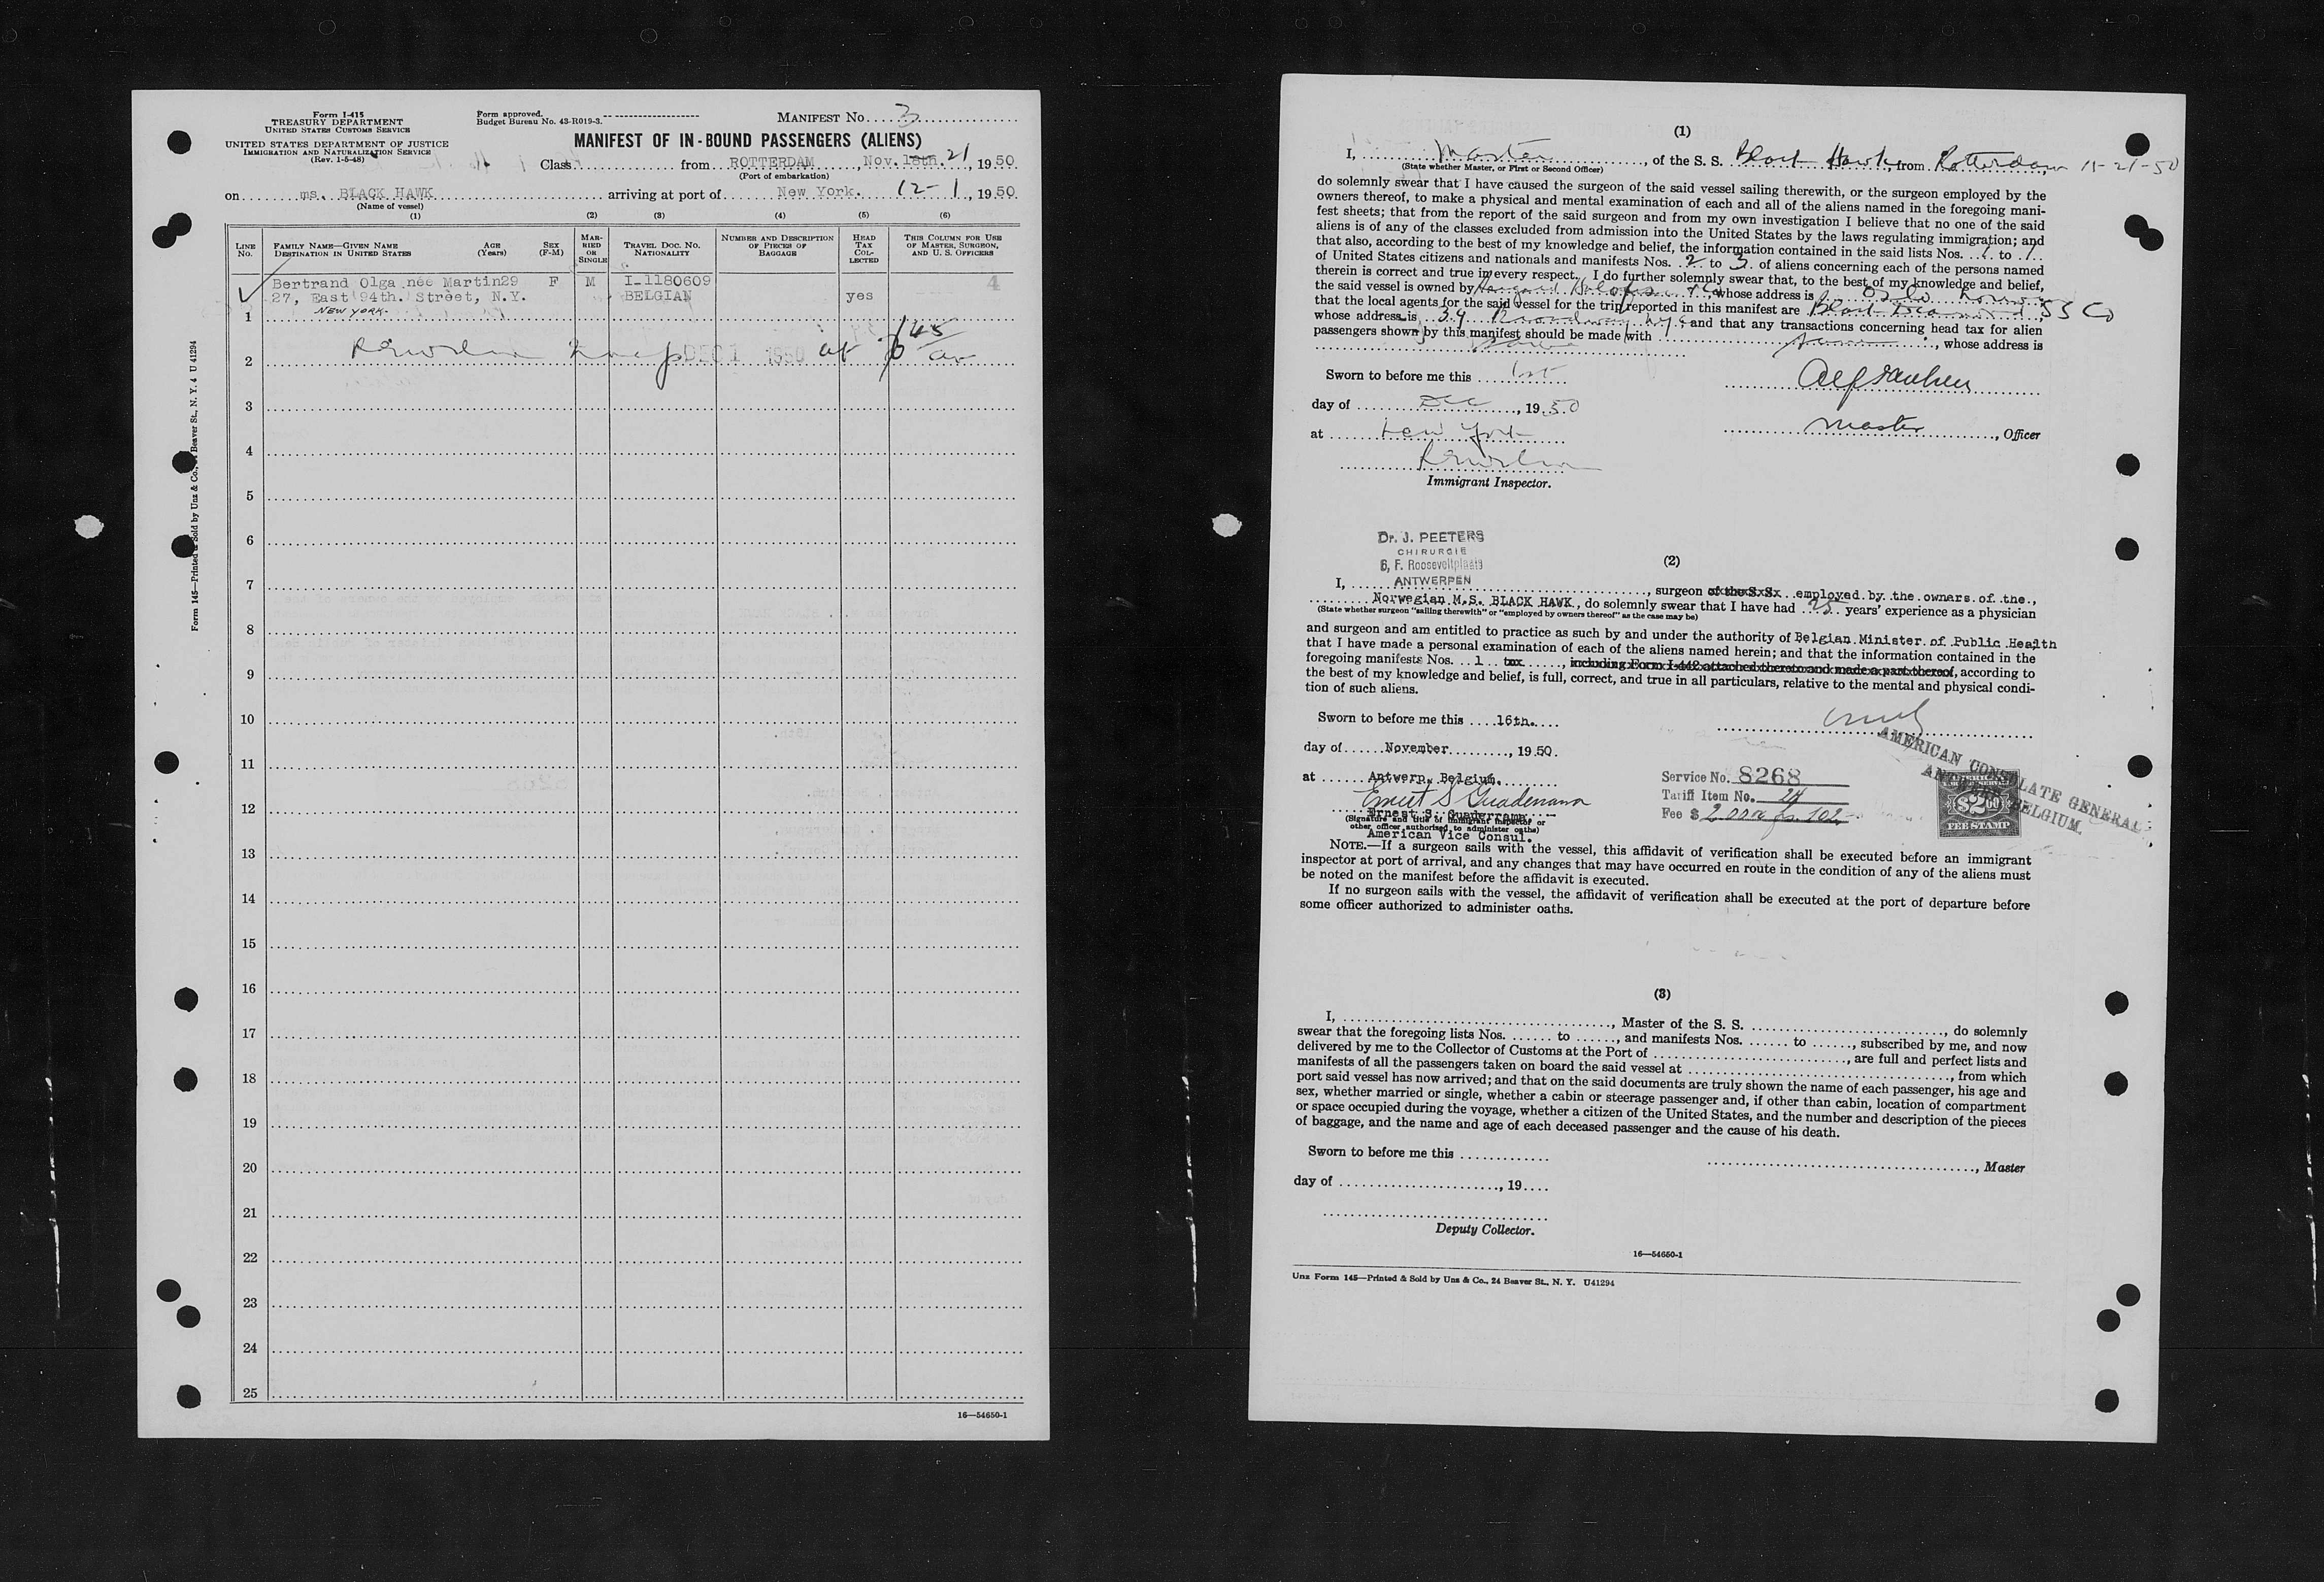 Form I-415
TREASURY DEPARTMENT
UNITED STATES CUSTOMS SERVICE
UNITED STATES DEPARTMENT OF JUSTICE
IMMIGRATION AND NATURALIZATION SERVICE
(Rev. 1-5-48)
Form approved.
Budget Bureau No. 43-R019-3.
MANIFEST No. 3
MANIFEST OF IN-BOUND PASSENGERS (ALIENS)
Class from ROTTERDAM, Nov. 18th. 21, 1950
(Port of embarkation)
on ms. BLACK HAWK arriving at port of New York. 12-1, 1950
(Name of vessel)
(1) (2) (3) (4) (5) (6)
LINE No.
FAMILY NAME—GIVEN NAME
DESTINATION IN UNITED STATES
AGE (Years)
SEX (F-M)
MARRIED OR SINGLE
TRAVEL DOC. No. NATIONALITY
NUMBER AND DESCRIPTION OF PIECES OF BAGGAGE
HEAD TAX COLLECTED
THIS COLUMN FOR USE OF MASTER, SURGEON, AND U. S. OFFICERS
Bertrand Olga née Martin 29 F M I-1180609 4
27, East 94th. Street, N.Y. BELGIAN yes
NEW YORK.
1
2 DEC 1 1950 at
3
4
5
6
7
8
9
10
11
12
13
14
15
16
17
18
19
20
21
22
23
24
25
16—54650-1
Form 145—Printed & Sold by Unz & Co., Beaver St., N. Y. 4 U 41294
(1)
I, Master, of the S. S. Black Hawk, from Rotterdam 11-21-50
(State whether Master, or First or Second Officer)
do solemnly swear that I have caused the surgeon of the said vessel sailing therewith, or the surgeon employed by the
owners thereof, to make a physical and mental examination of each and all of the aliens named in the foregoing mani-
fest sheets; that from the report of the said surgeon and from my own investigation I believe that no one of the said
aliens is of any of the classes excluded from admission into the United States by the laws regulating immigration; and
that also, according to the best of my knowledge and belief, the information contained in the said lists Nos. 1 to 1
of United States citizens and nationals and manifests Nos. 2 to 3 of aliens concerning each of the persons named
therein is correct and true in every respect. I do further solemnly swear that, to the best of my knowledge and belief,
the said vessel is owned by whose address is Oslo Norway
that the local agents for the said vessel for the trip reported in this manifest are Black Diamond SS Co
whose address is 39 Broadway NYC and that any transactions concerning head tax for alien
passengers shown by this manifest should be made with same, whose address is
same
Sworn to before me this 1st
day of Dec, 1950
at New York
Immigrant Inspector.
Master, Officer
Dr. J. PEETERS
CHIRURGIE
6, F. Rooseveltplaats
ANTWERPEN
(2)
I, , surgeon of the S.S. employed by the owners of the,
Norwegian M.S. BLACK HAWK, do solemnly swear that I have had 25 years' experience as a physician
(State whether surgeon "sailing therewith" or "employed by owners thereof" as the case may be)
and surgeon and am entitled to practice as such by and under the authority of Belgian Minister of Public Health
that I have made a personal examination of each of the aliens named herein; and that the information contained in the
foregoing manifests Nos. 1 to, including Form I-442 attached thereto and made a part thereof, according to
the best of my knowledge and belief, is full, correct, and true in all particulars, relative to the mental and physical condi-
tion of such aliens.
Sworn to before me this 16th.
day of November, 1950.
at Antwerp, Belgium.
Ernest S. Guaderrama
(Signature and title of immigrant inspector or
other officer authorized to administer oaths)
American Vice Consul.
Service No. 8268
Tariff Item No. 24
Fee $
AMERICAN CONSULATE GENERAL
ANTWERP, BELGIUM.
$2.00
FEE STAMP
NOTE.—If a surgeon sails with the vessel, this affidavit of verification shall be executed before an immigrant
inspector at port of arrival, and any changes that may have occurred en route in the condition of any of the aliens must
be noted on the manifest before the affidavit is executed.
If no surgeon sails with the vessel, the affidavit of verification shall be executed at the port of departure before
some officer authorized to administer oaths.
(3)
I, , Master of the S. S. , do solemnly
swear that the foregoing lists Nos. to , and manifests Nos. to , subscribed by me, and now
delivered by me to the Collector of Customs at the Port of , are full and perfect lists and
manifests of all the passengers taken on board the said vessel at , from which
port said vessel has now arrived; and that on the said documents are truly shown the name of each passenger, his age and
sex, whether married or single, whether a cabin or steerage passenger and, if other than cabin, location of compartment
or space occupied during the voyage, whether a citizen of the United States, and the number and description of the pieces
of baggage, and the name and age of each deceased passenger and the cause of his death.
Sworn to before me this
day of , 19
, Master
Deputy Collector.
16—54650-1
Unz Form 145—Printed & Sold by Unz & Co., 24 Beaver St., N. Y. U41294